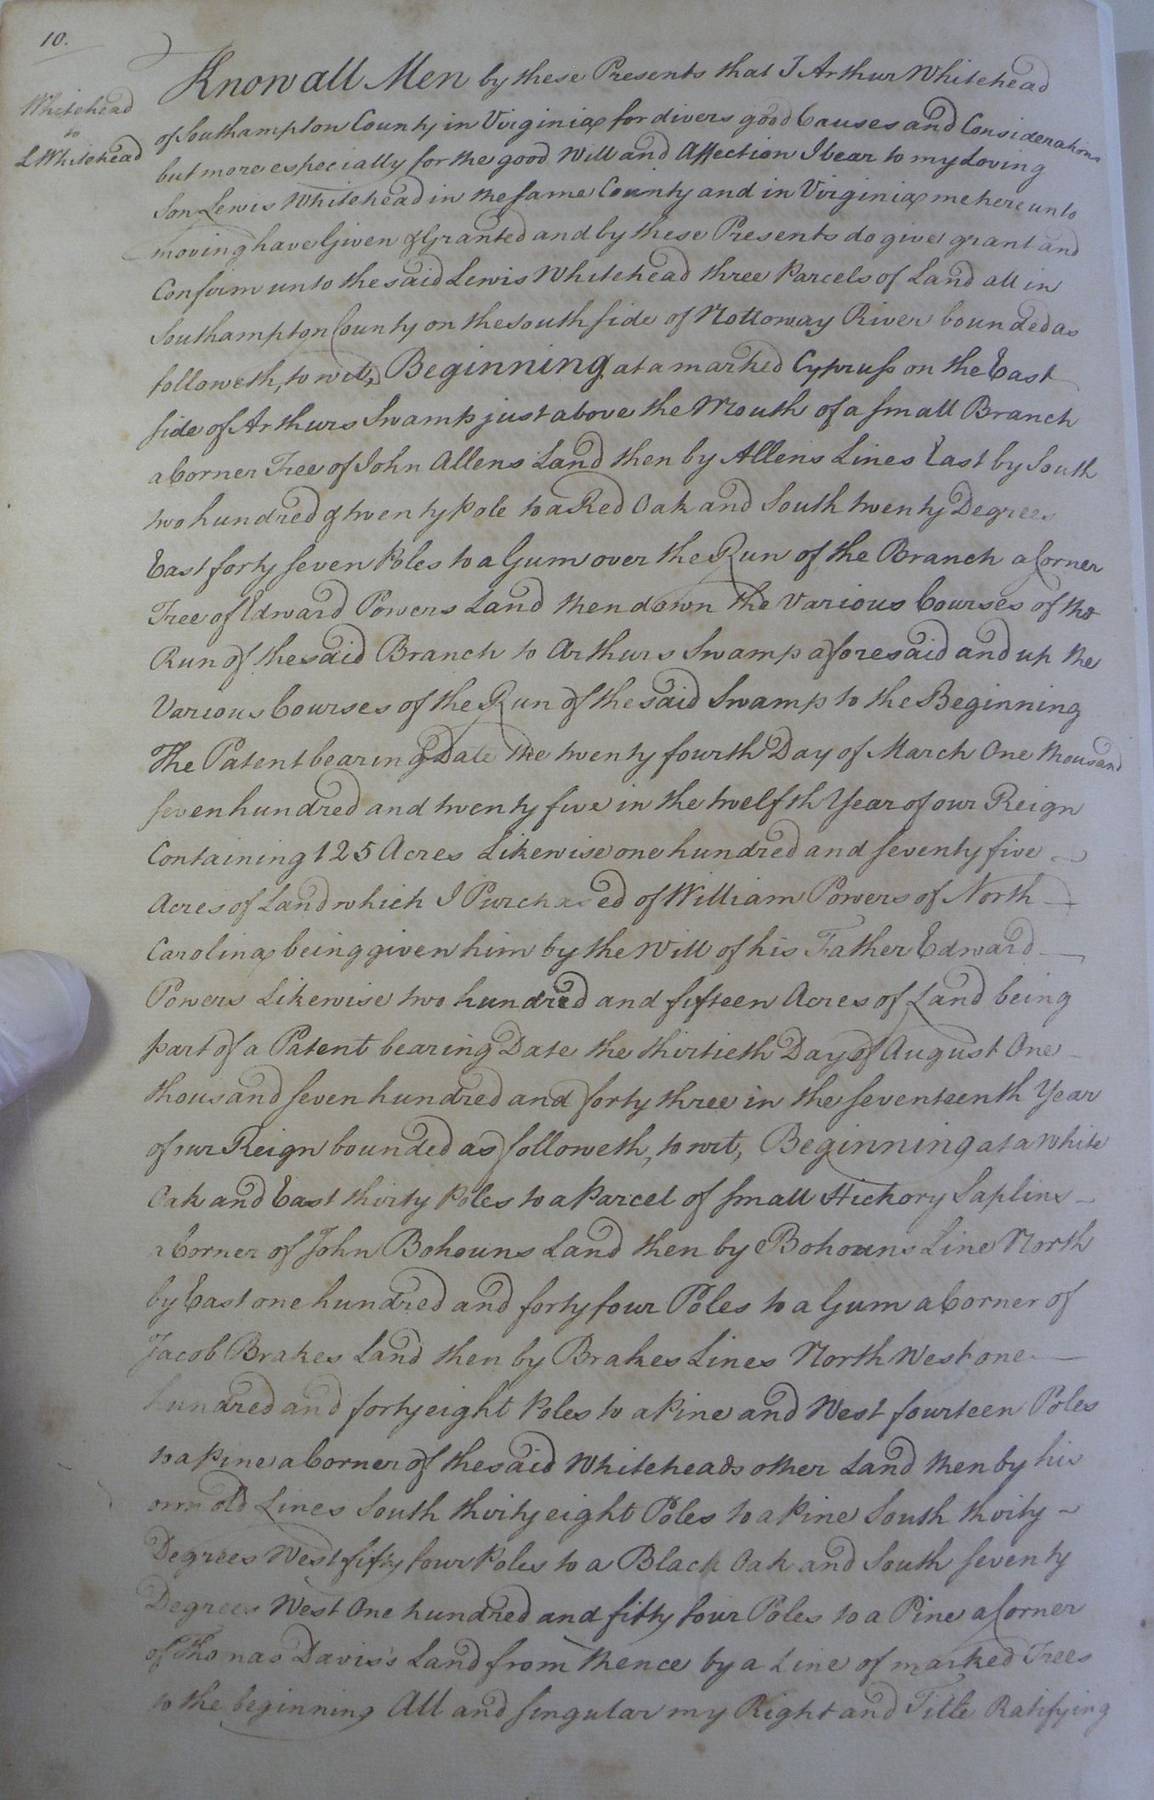 10.
Whitehead
to
L Whitehead
Know all Men by these Presents that I Arthur Whitehead
of Southampton County in Virginia for divers good Causes and Considerations
but more especially for the good Will and Affection I bear to my Loving
Son Lewis Whitehead in the same County and in Virginia me hereunto
moving have Given & Granted and by these Presents do give grant and
Confirm unto the said Lewis Whitehead three Parcels of Land all in
Southampton County on the south side of Nottoway River bounded as
followeth, to wit, Beginning at a marked Cypruss on the East
side of Arthurs Swamp just above the Mouth of a small Branch
a Corner Tree of John Allens Land then by Allens Lines East by South
two hundred & twenty pole to a Red Oak and South twenty Degrees
East forty seven Poles to a Gum over the Run of the Branch a Corner
Tree of Edward Powers Land then down the Various Courses of the
Run of the said Branch to Arthurs Swamp aforesaid and up the
Various Courses of the Run of the said Swamp to the Beginning
The Patent bearing Date the twenty fourth Day of March One thousand
seven hundred and twenty five in the twelfth Year of our Reign
Containing 125 Acres Likewise one hundred and seventy five
Acres of Land which I Purchased of William Powers of North
Carolina being given him by the Will of his Father Edward
Powers Likewise two hundred and fifteen Acres of Land being
part of a Patent bearing Date the thirtieth Day of August One
thousand seven hundred and forty three in the seventeenth Year
of our Reign bounded as followeth, to wit, Beginning at a White
Oak and East thirty Poles to a Parcel of small Hickory Saplins
a Corner of John Bohouns Land then by Bohouns Line North
by East one hundred and forty four Poles to a Gum a Corner of
Jacob Brakes Land then by Brakes Lines North West one
hundred and forty eight Poles to a Pine and West fourteen Poles
to a Pine a Corner of the said Whiteheads other Land then by his
own old Lines South thirty eight Poles to a Pine South thirty
Degrees West fifty four Poles to a Black Oak and South seventy
Degrees West One hundred and fifty four Poles to a Pine a Corner
of Thomas Davis's Land from thence by a Line of marked Trees
to the beginning All and singular my Right and Title Ratifying